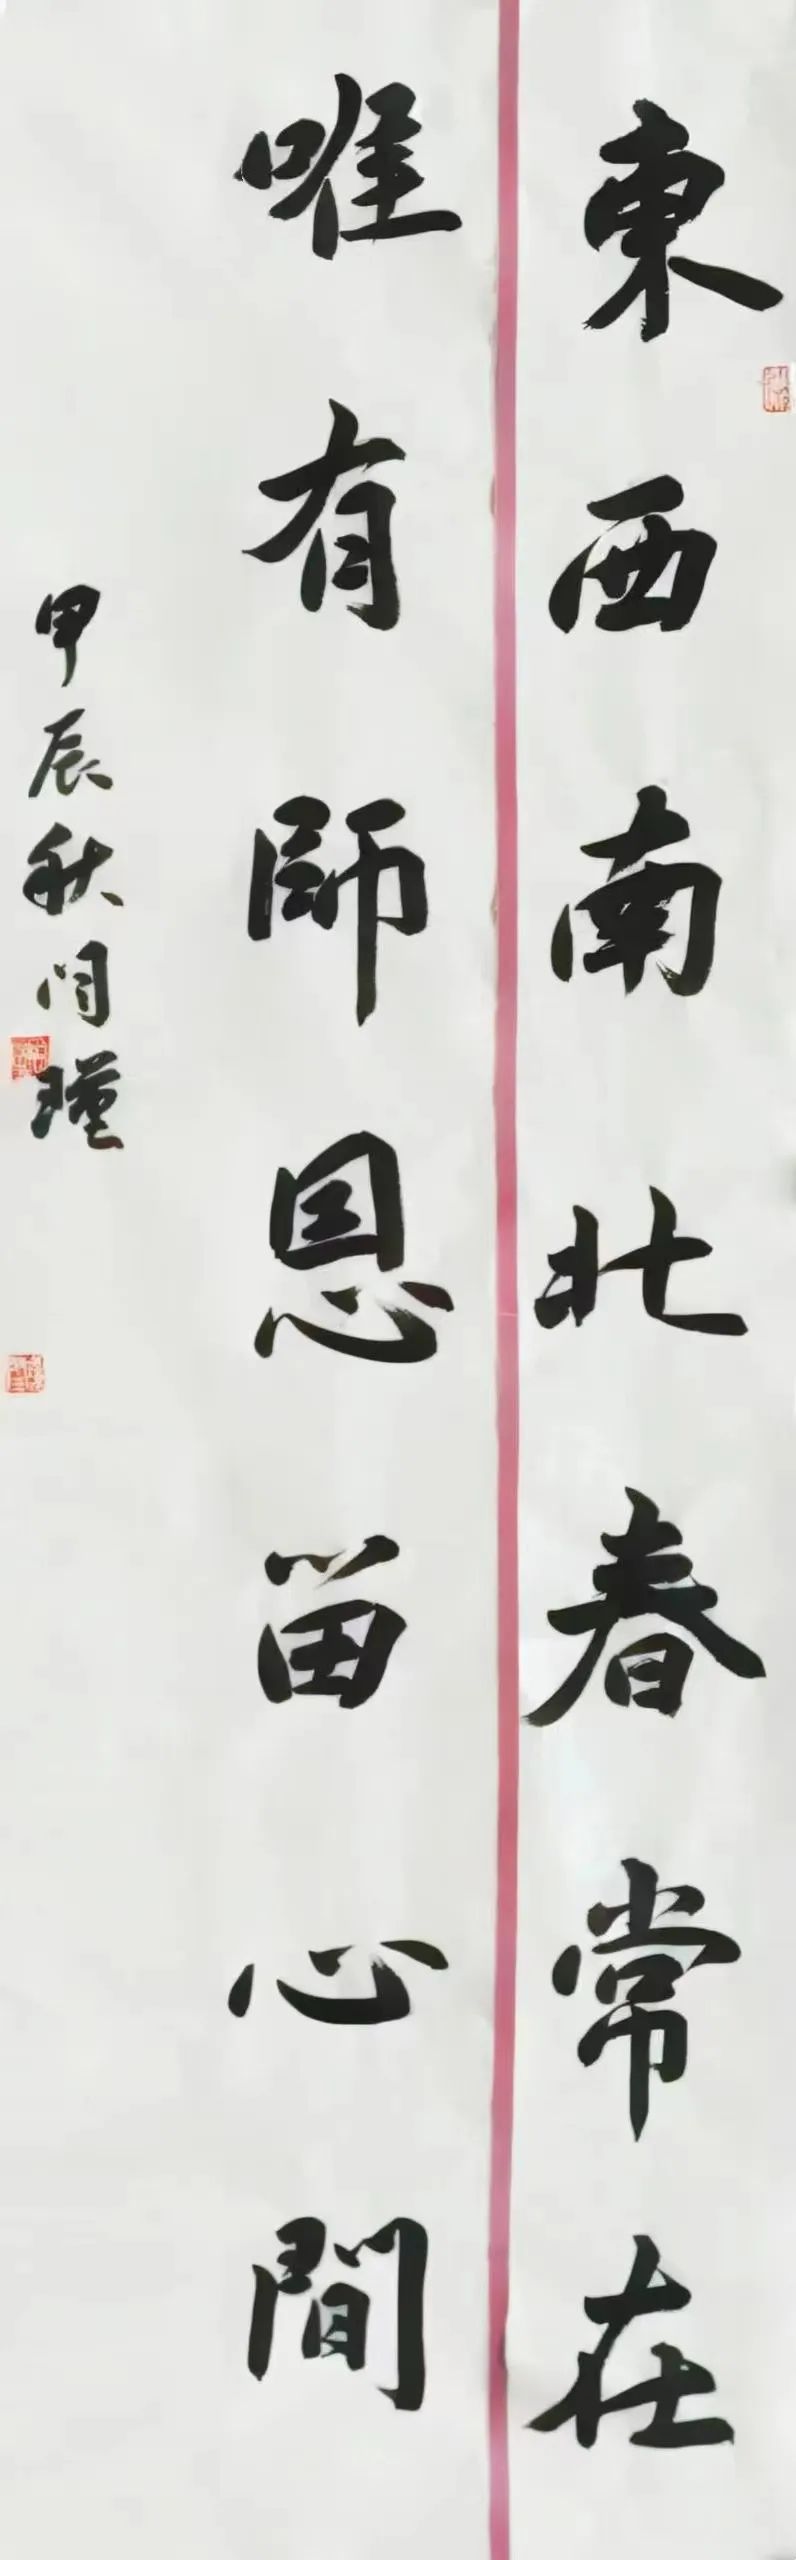 東西南北春常在
唯有師恩畄心間
甲辰秋瑾